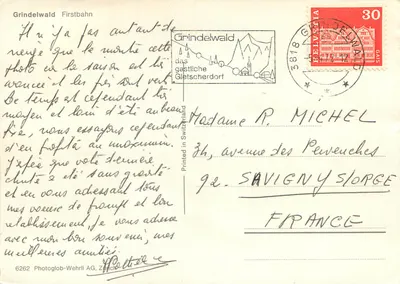 Grindelwald Firstbahn
Il n'y a pas autant de
neige que le montre cette
photo car la saison est très
avancée et les foins sont verts.
Le temps est cependant très
moyen et loin d'être au beau
fixe, nous essayons cependant
d'en profiter au maximum.
J'espère que votre dernière
chute a été sans gravité
et en vous adressant tous
mes voeux de prompt et bon
rétablissement, je vous adresse
avec mon bon souvenir, mes
meilleures amitiés.
6262 Photoglob-Wehrli AG, Zürich
Printed in Switzerland
Grindelwald
das
gastliche
Gletscherdorf
3818 GRINDELWALD
HELVETIA
30
Madame R. MICHEL
34, avenue des Pervenches
92. SAVIGNY S/ORGE
FRANCE